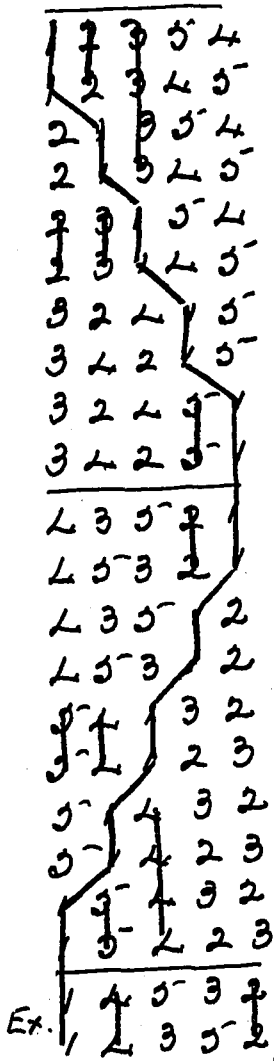 1 2 3 5 4
1 2 3 4 5
2 1 3 5 4
2 1 3 4 5
2 3 1 5 4
2 3 1 4 5
3 2 4 1 5
3 4 2 1 5
3 2 4 5 1
3 4 2 5 1
4 3 5 2 1
4 5 3 2 1
4 3 5 1 2
4 5 3 1 2
5 4 1 3 2
5 4 1 2 3
5 1 4 3 2
5 1 4 2 3
1 5 4 3 2
1 5 4 2 3
1 4 5 3 2
Ex. 1 4 3 5 2